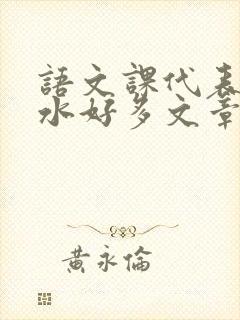 語文課代表
水好多文章
黃永倫